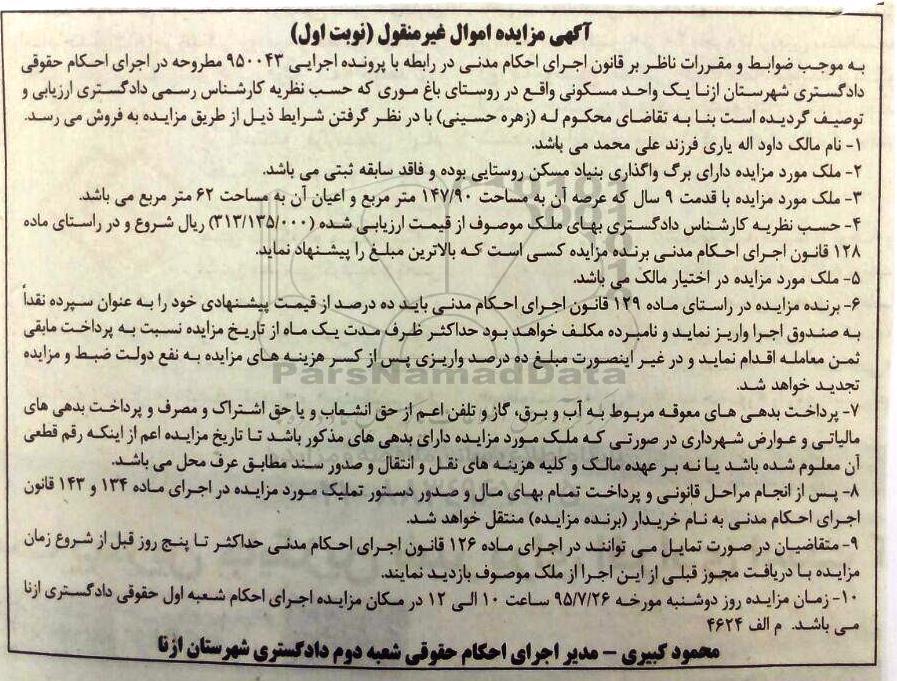 آگهی مزایده اموال غیرمنقول (نوبت اول)
به موجب ضوابط و مقررات ناظر بر قانون اجرای احکام مدنی در رابطه با پرونده اجرایی ۹۵۰۰۴۳ مطروحه در اجرای احکام حقوقی
دادگستری شهرستان ازنا یک واحد مسکونی واقع در روستای باغ موری که حسب نظریه کارشناس رسمی دادگستری ارزیابی و
توصیف گردیده است بنا به تقاضای محکوم له (زهره حسینی) با در نظر گرفتن شرایط ذیل از طریق مزایده به فروش می رسد.
۱- نام مالک داود اله یاری فرزند علی محمد می باشد.
۲- ملک مورد مزایده دارای برگ واگذاری بنیاد مسکن روستایی بوده و فاقد سابقه ثبتی می باشد.
۳- ملک مورد مزایده با قدمت ۹ سال که عرصه آن به مساحت ۱۴۷/۹۰ متر مربع و اعیان آن به مساحت ۶۲ متر مربع می باشد.
۴- حسب نظریه کارشناس دادگستری بهای ملک موصوف از قیمت ارزیابی شده (۳۱۳/۱۳۵/۰۰۰) ریال شروع و در راستای ماده
۱۲۸ قانون اجرای احکام مدنی برنده مزایده کسی است که بالاترین مبلغ را پیشنهاد نماید.
۵- ملک مورد مزایده در اختیار مالک می باشد.
۶- برنده مزایده در راستای ماده ۱۲۹ قانون اجرای احکام مدنی باید ده درصد از قیمت پیشنهادی خود را به عنوان سپرده نقداً
به صندوق اجرا واریز نماید و نامبرده مکلف خواهد بود حداکثر ظرف مدت یک ماه از تاریخ مزایده نسبت به پرداخت مابقی
ثمن معامله اقدام نماید و در غیر اینصورت مبلغ ده درصد واریزی پس از کسر هزینه های مزایده به نفع دولت ضبط و مزایده
تجدید خواهد شد.
ParsNamadData
۷- پرداخت بدهی های معوقه مربوط به آب و برق، گاز و تلفن اعم از حق انشعاب و یا حق اشتراک و مصرف و پرداخت بدهی های
مالیاتی و عوارض شهرداری در صورتی که ملک مورد مزایده دارای بدهی های مذکور باشد تا تاریخ مزایده اعم از اینکه رقم قطعی
آن معلوم شده باشد یا نه بر عهده مالک و کلیه هزینه های نقل و انتقال و صدور سند مطابق عرف محل می باشد.
۸- پس از انجام مراحل قانونی و پرداخت تمام بهای مال و صدور دستور تملیک مورد مزایده در اجرای ماده ۱۳۴ و ۱۴۳ قانون
اجرای احکام مدنی به نام خریدار (برنده مزایده) منتقل خواهد شد.
۹- متقاضیان در صورت تمایل می توانند در اجرای ماده ۱۲۶ قانون اجرای احکام مدنی حداکثر تا پنج روز قبل از شروع زمان
مزایده با دریافت مجوز قبلی از این اجرا از ملک موصوف بازدید نمایند.
۱۰- زمان مزایده روز دوشنبه مورخه ۹۵/۷/۲۶ ساعت ۱۰ الی ۱۲ در مکان مزایده اجرای احکام شعبه اول حقوقی دادگستری ازنا
می باشد. م الف ۴۶۲۴
محمود کبیری - مدیر اجرای احکام حقوقی شعبه دوم دادگستری شهرستان ازنا